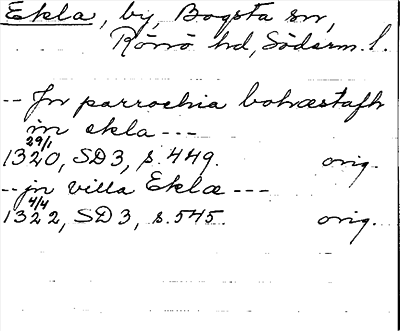 Ekla, by, Bogsta sn,
Rönö hd, Söderm. l.
-- Jn parrochia bohæstafh
in ekla ---
29/1
1320, SD3, s. 449. orig.
-- jn villa Eklæ ---
4/4
1322, SD3, s. 545. orig.